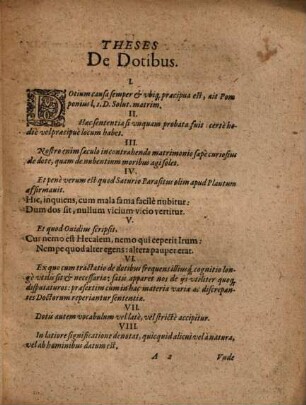 THESES
De Dotibus.
I.
DOtium causa semper & ubiq; præcipua est, ait Pom
ponius l. 1. D. Solut. matrim.
II.
Hæc sententia si unquam probata fuit: certè ho-
diè vel præcipuè locum habet.
III.
Nostro enim sæculo in contrahendo matrimonio sæpè curiosius
de dote, quam de nubentium moribus agi solet.
IV.
Et penè verum est quod Saturio Parasitus olim apud Plautum
affirmavit.
Hic, inquiens, cum mala fama facilè nubitur:
Dum dos sit, nullum vicium vicio vertitur.
V.
Et quod Ovidius scripsit.
Cur nemo est Hecalem, nemo qui ceperit Irum:
Nempe quod alter egens: altera pauper erat.
VI.
Ex quo cum tractatio de dotibus frequentissima, cognitio lon-
gè utilis sit & necessaria; satis apparet nos de ijs utiliter quoq;
disputaturos: præsertim cum in hac materia variæ ac discrepan-
tes Doctorum reperiantur sententiæ.
VII.
Dotis autem vocabulum vel latè, vel strictè accipitur.
VIII.
In latiore significatione denotat, quicquid alicui vel à natura,
vel ab hominibus datum est,
A 2 Unde